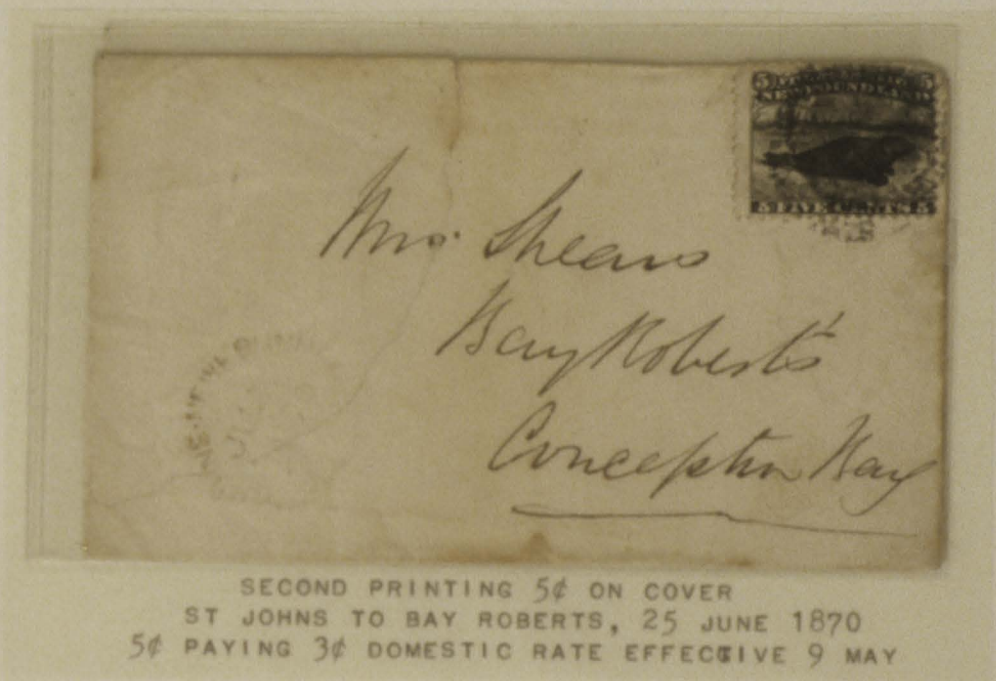 5 5
NEWFOUNDLAND
5 FIVE CENTS 5
Mrs. Shears
Bay Roberts
Conception Bay
SECOND PRINTING 5¢ ON COVER
ST JOHNS TO BAY ROBERTS, 25 JUNE 1870
5¢ PAYING 3¢ DOMESTIC RATE EFFECTIVE 9 MAY